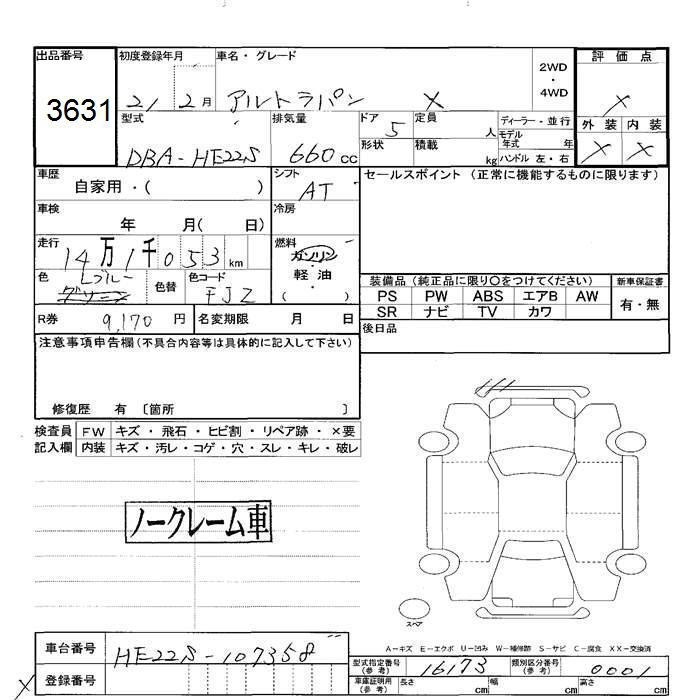 出品番号 初度登録年月 車名・グレード 2WD ・ 4WD 評価点
3631 21 2月 アルトラパン X X
型式 排気量 ドア 定員 ディーラー・並行 外装 内装
DBA-HE22S 660cc 5 人 モデル年式 年 X X
形状 積載 kg ハンドル 左・右
車歴 シフト セールスポイント(正常に機能するものに限ります)
自家用・( ) AT
車検 冷房
年 月( 日)
走行 燃料
14万1千053km ガソリン
色 Lブルー 色替 色コード 軽油
グリーン FJZ ( )
装備品(純正品に限り〇をつけてください) 新車保証書
PS PW ABS エアB AW 有・無
SR ナビ TV カワ
R券 9,170円 名変期限 月 日 後日品
注意事項申告欄(不具合内容等は具体的に記入して下さい)
修復歴 有〔箇所 〕
検査員 FW キズ・飛石・ヒビ割・リペア跡・×要
記入欄 内装 キズ・汚レ・コゲ・穴・スレ・キレ・破レ
ノークレーム車
スペア
A-キズ E-エクボ U-凹み W-補修跡 S-サビ C-腐食 XX-交換済
車台番号 HE22S-107358
型式指定番号(参考) 16173 類別区分番号(参考) 0001
X 登録番号
車庫証明用(参考) 長さ cm 幅 cm 高さ cm